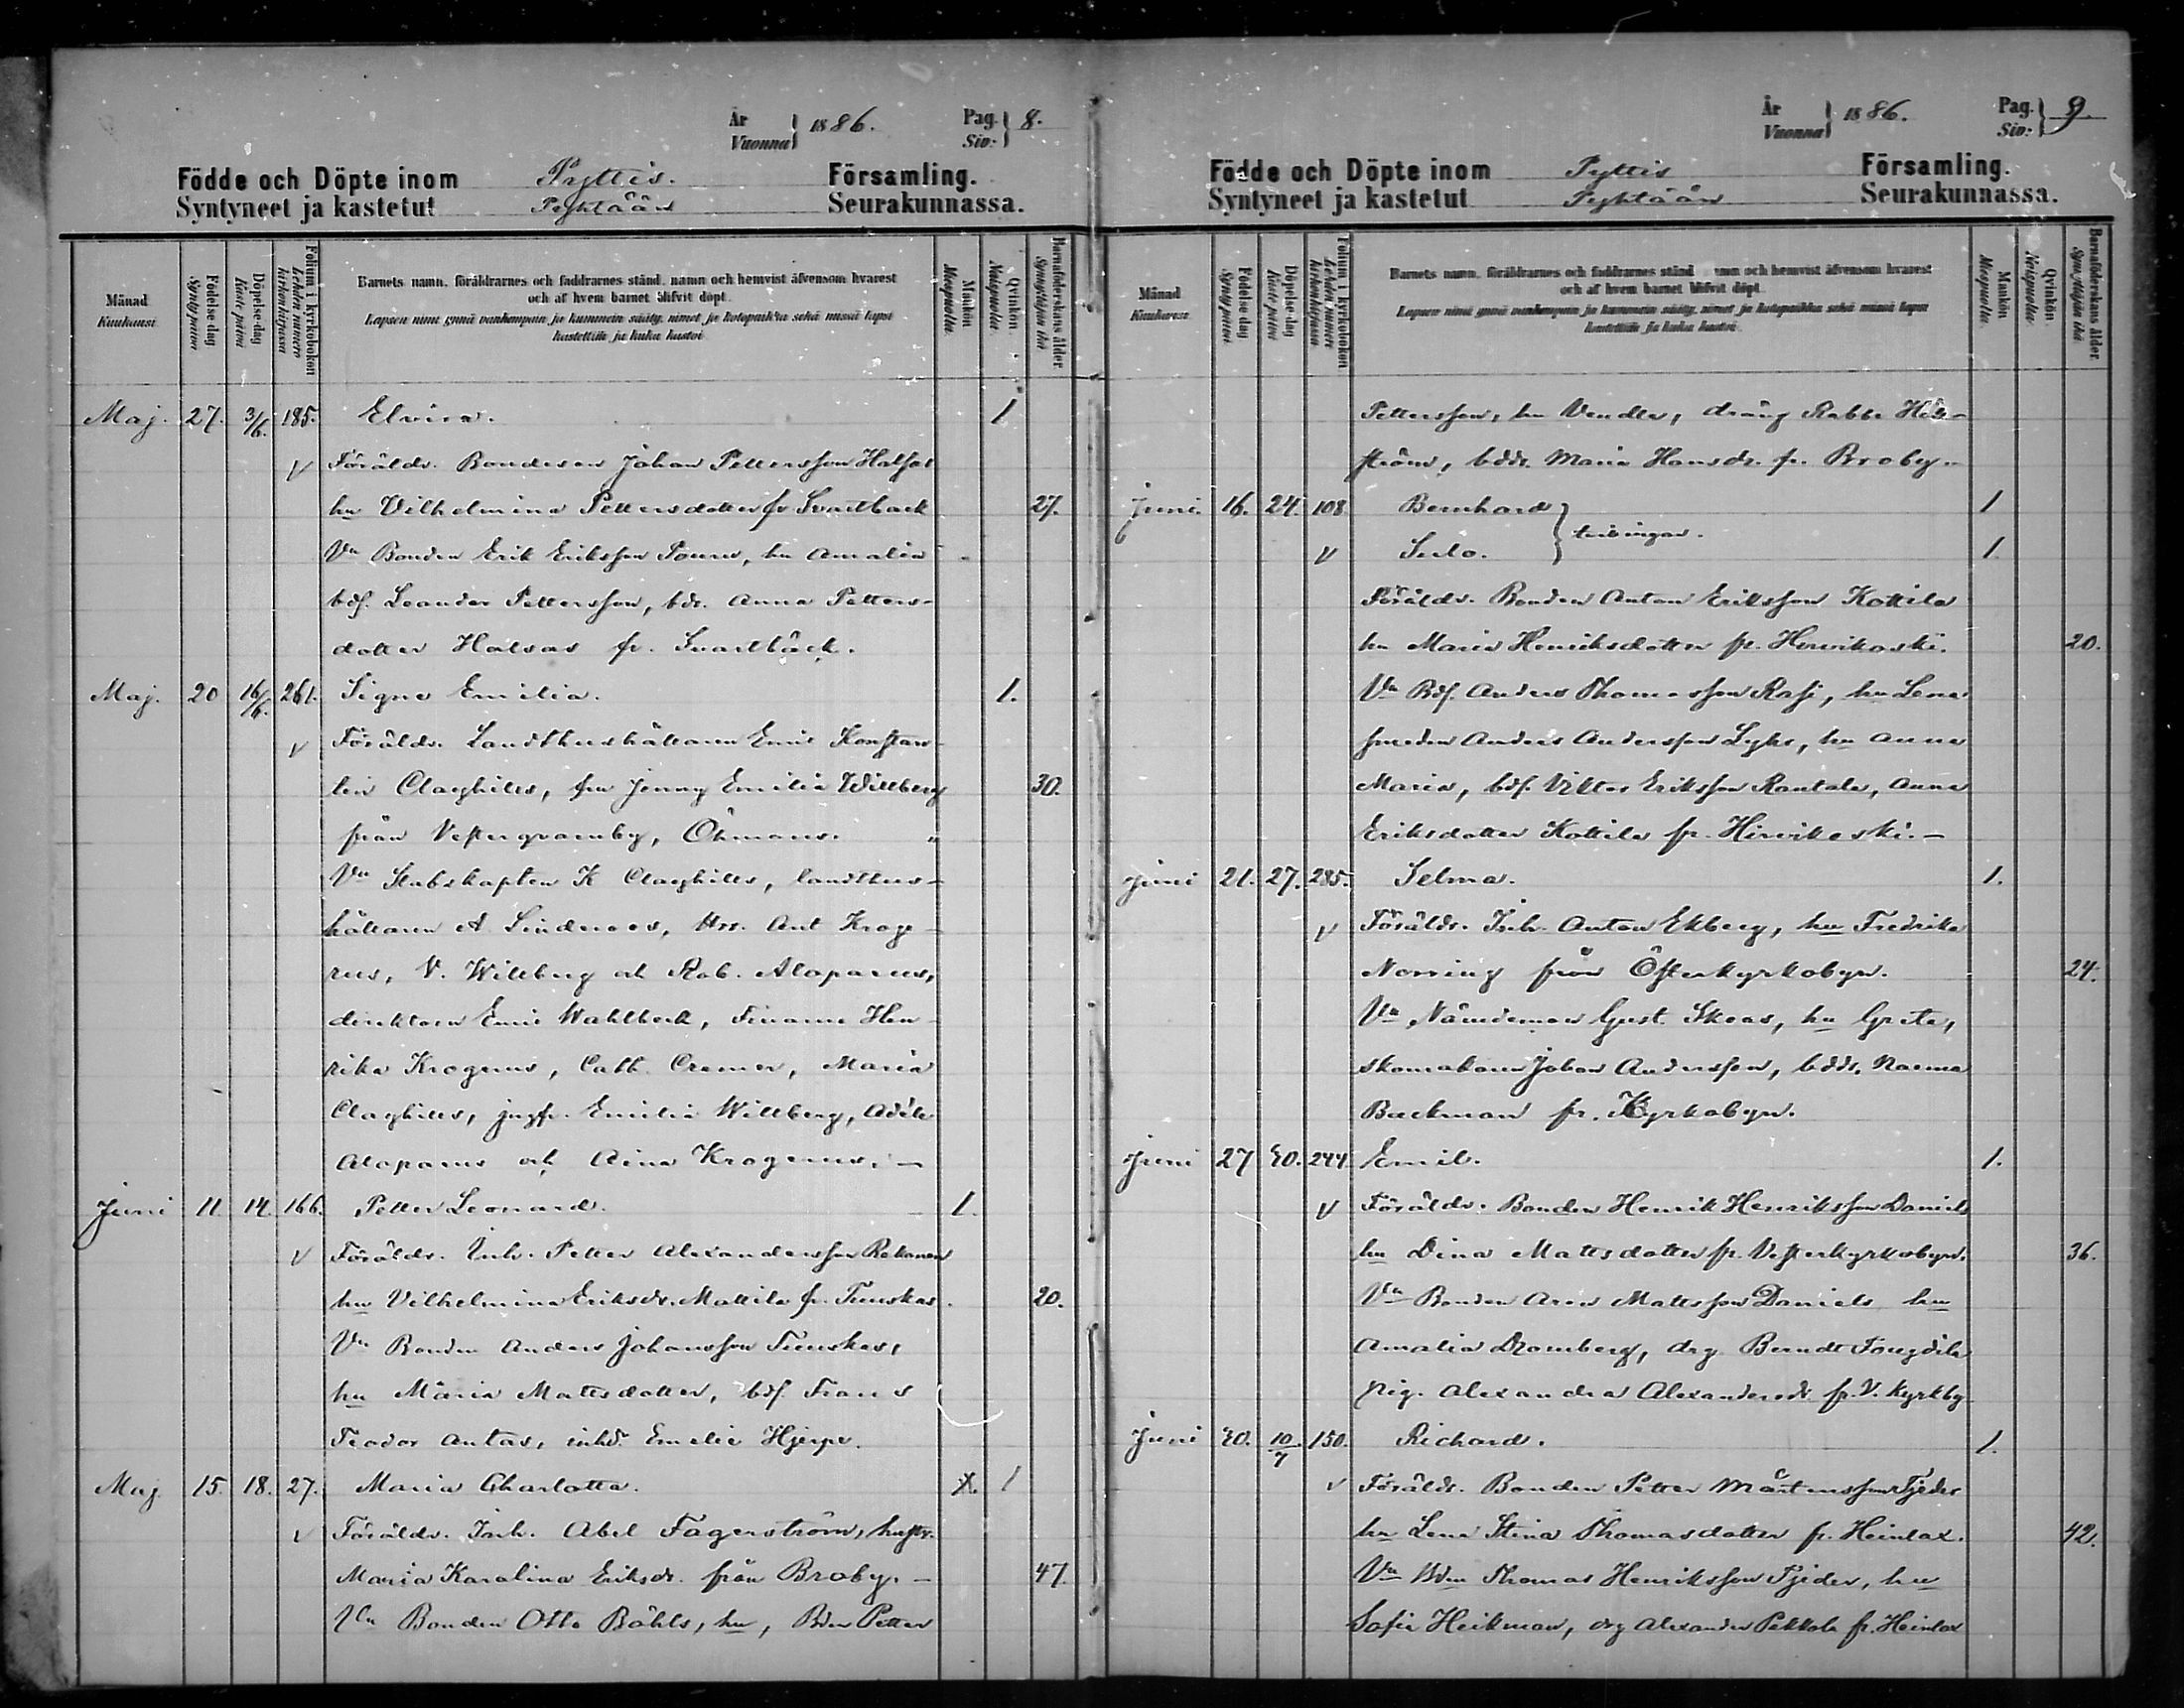 År
Vuonna 1886.
Pag.
Siv: 8.
Födde och Döpte inom Pyttis. Församling.
Syntyneet ja kastetut Pyhtään Seurakunnassa.
Månad
Kuukausi
Födelse-dag
Syntypäivä
Döpelse-dag
Kaste päivä
Folium i kyrkoboken
Lehden numero kirkonkirjassa
Barnets namn, föräldrarnes och faddrarnes stånd, namn och hemvist äfvensom hvarest
och af hvem barnet blifvit döpt.
Lapsen nimi ynnä vanhempain ja kummein sääty, nimet ja kotopaikka sekä missä lapsi
kastettiin ja kuka kastoi
Mankön
Miespuolia
Qvinkön
Naispuolia
Barnaföderskans ålder
Synnyttäjän ikä
Maj. 27. 3/6. 185. Elvira. 1
Föräldr. Bondeson Johan Pettersson Halsas
hu Vilhelmina Pettersdotter fr Svartback 27.
Vn Bonden Erik Eriksson, hu Amalia
bds. Leander Pettersson, bdr. Anna Petters-
dotter Halsas fr. Svartbäck.
Maj. 20 16/6. 261. Signe Emilia. 1.
Föräldr. Landthushållaren Emil Konstan-
tin Clayhills, fru Jenny Emilia Willberg 30.
från Vestergvarnby, Öhmans.
Vn Stabskapten K Clayhills, landthus-
hållaren A Lindroos, Hrr. Ant Kroge-
rus, V. Willberg och Rob. Alopaeus,
direktorn Emil Wahlbeck, Hen-
rika Krogerus, Cath. Cremer, Maria
Clayhills, jngfr. Emilia Willberg, Adèle
Alopaeus och Aina Krogerus. —
Juni 11. 14. 166. Petter Leonard. 1.
Föräldr. Inh. Petter Alexandersson
hu Vilhelmina Eriksdr. Mattila fr. Tuuskas. 20.
Vn Bonden Anders Johansson Tuuskas,
hu Maria Mattsdotter, bds. Frans
Teodor Antas, inhdr. Emelie Hjerpe.
Maj 15. 18. 27. Maria Charlotta. 1
Föräldr. Inh. Abel Fagerström, hustr.
Maria Karolina Eriksdr. från Broby. — 47.
Vn Bonden Otto Båhls, hu, Bden Petter
År
Vuonna 1886.
Pag.
Siv: 9.
Födde och Döpte inom Pyttis Församling.
Syntyneet ja kastetut Pyhtään Seurakunnassa.
Månad
Kuukausi
Födelse-dag
Syntypäivä
Döpelse-dag
Kaste päivä
Folium i kyrkoboken
Lehden numero kirkonkirjassa
Barnets namn, föräldrarnes och faddrarnes stånd namn och hemvist äfvensom hvarest
och af hvem barnet blifvit döpt.
Lapsen nimi ynnä vanhempain ja kummein sääty, nimet ja kotopaikka sekä missä lapsi
kastettiin ja kuka kastoi.
Mankön
Miespuolia
Qvinkön
Naispuolia
Barnaföderskans ålder.
Synnyttäjän ikä
Pettersson, hu Vendla, dräng Rabbe
ström, bddr. Maria Hansdr. fr. Broby.
Juni. 16. 24. 108 Bernhard 1
Sulo. } tvilingar. 1.
Föräldr. Bonden Anton Eriksson Kottila
hu Maria Henriksdotter fr. Hirvikoski. 20.
Vn Bds. Anders Thomasson Rasi, hu Lena
smeden Anders Andersson, hu Anna
Maria, bds. Viktor Eriksson Rantala, Anna
Eriksdotter Kottila fr. Hirvikoski. —
Juni 21. 27. 285. Selma. 1.
Föräldr. Inh. Anton Ekberg, hu Fredrika
Norring från Österkyrkobyn. 24.
Vn Nämdeman Gust. Skoas, hu Greta,
skomakaren Johan Andersson, bddr. Naema
Backman fr. Kyrkobyn.
Juni 27 30. 244 Emil. 1.
Föräldr. Bonden Henrik Henriksson Daniels
hu Dina Mattsdotter fr. Vesterkyrkobyn. 36.
Vn Bonden Aron Mattsson Daniels hu
Amalia Dromberg, drg Berndt
pig. Alexandra Alexandersdr. fr. V. Kyrkby
Juni 30. 10/7 150. Richard. 1.
Föräldr. Bonden Petter Mårtensson Tjeder
hu Lena Stina Thomasdotter fr. Heinlax. 42.
Vn Bden Thomas Henriksson Tjeder, hu
Sofia Heikman, drg Alexander Pekkola fr. Heinlax